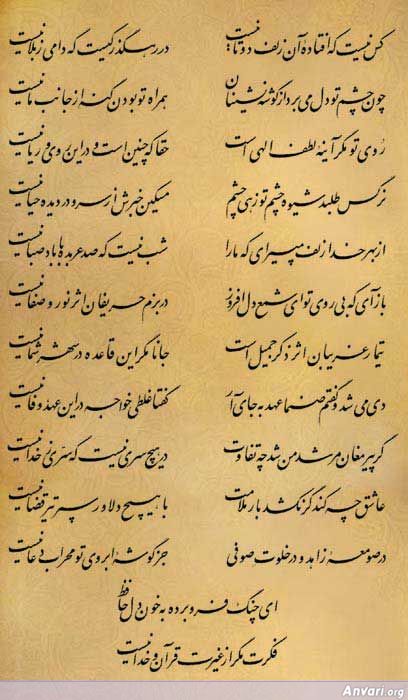 کس نیست که افتادهٔ آن زلف دوتا نیست در رهگذر کیست که دامی ز بلا نیست
چون چشم تو دل می‌برد از گوشه نشینان همراه تو بودن گنه از جانب ما نیست
روی تو مگر آینهٔ لطف الهی است حقا که چنین است و در این روی و ریا نیست
نرگس طلبد شیوه چشم تو زهی چشم مسکین خبرش از سر و در دیده حیا نیست
از بهر خدا زلف مپیرای که ما را شب نیست که صد عربده با باد صبا نیست
بازآی که بی روی تو ای شمع دل افروز در بزم حریفان اثر نور و صفا نیست
تیمار غریبان اثر ذکر جمیل است جانا مگر این قاعده در شهر شما نیست
دی می شد و گفتم صنما عهد به جای آر گفتا غلطی خواجه در این عهد وفا نیست
گر پیر مغان مرشد من شد چه تفاوت در هیچ سری نیست که سری ز خدا نیست
عاشق چه کند گر نکشد بار ملامت با هیچ دلاور سپر تیر قضا نیست
در صومعهٔ زاهد و در خلوت صوفی جز گوشهٔ ابروی تو محراب دعا نیست
ای چنگ فرو برده به خون دل حافظ
فکرت مگر از غیرت قرآن و خدا نیست
Anvari.org